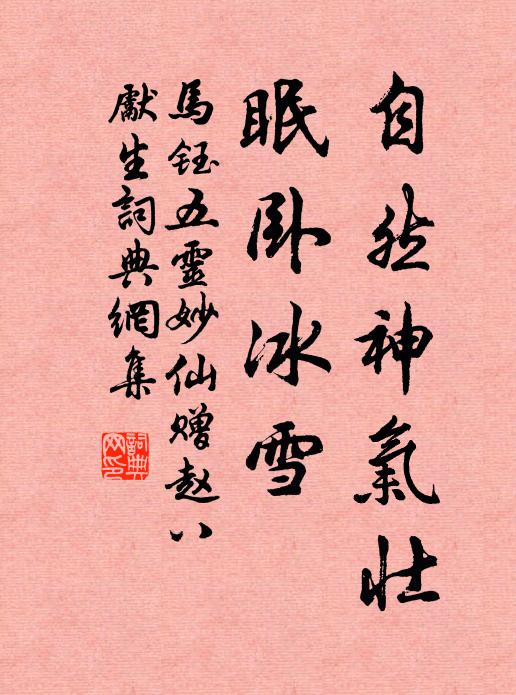 自然神氣壯
眠卧冰雪
馬鈺五靈妙仙赠赵八
獻生詞典網集
詞典网印